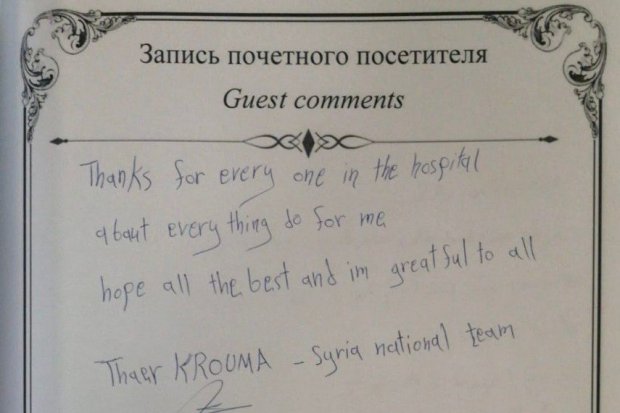 Запись почетного посетителя
Guest comments
Thanks for every one in the hospital
about every thing do for me
hope all the best and im greatful to all
Thaer KROUMA - Syria national team